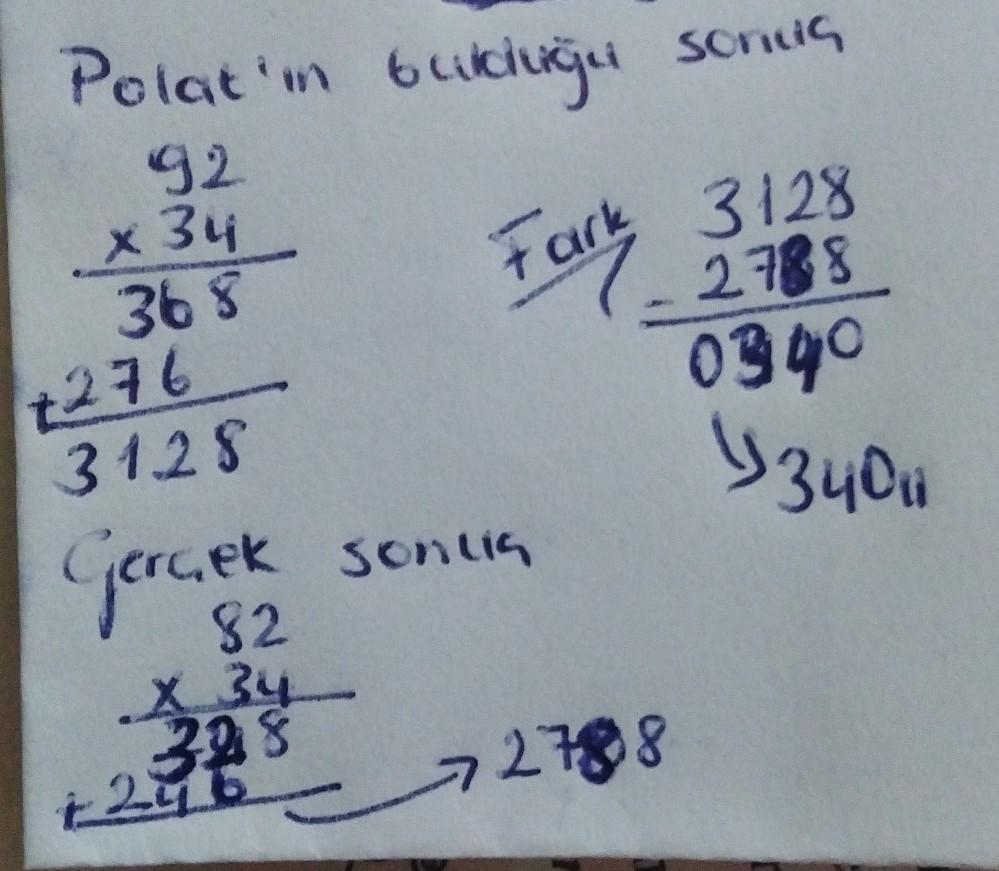 Polat'ın bulduğu sonuç
92
x 34
368
+276
3128
Fark
3128
- 2788
0340
340,,
Gerçek sonuç
82
x 34
328
+ 246
2788